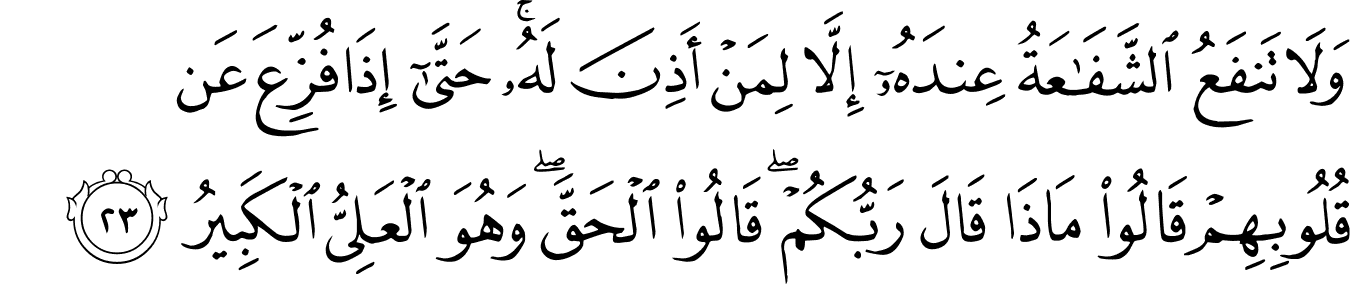 وَلَا تَنفَعُ ٱلشَّفَـٰعَةُ عِندَهُۥٓ إِلَّا لِمَنْ أَذِنَ لَهُۥ ۚ حَتَّىٰٓ إِذَا فُزِّعَ عَن
قُلُوبِهِمْ قَالُوا۟ مَاذَا قَالَ رَبُّكُمْ ۖ قَالُوا۟ ٱلْحَقَّ ۖ وَهُوَ ٱلْعَلِىُّ ٱلْكَبِيرُ ٢٣